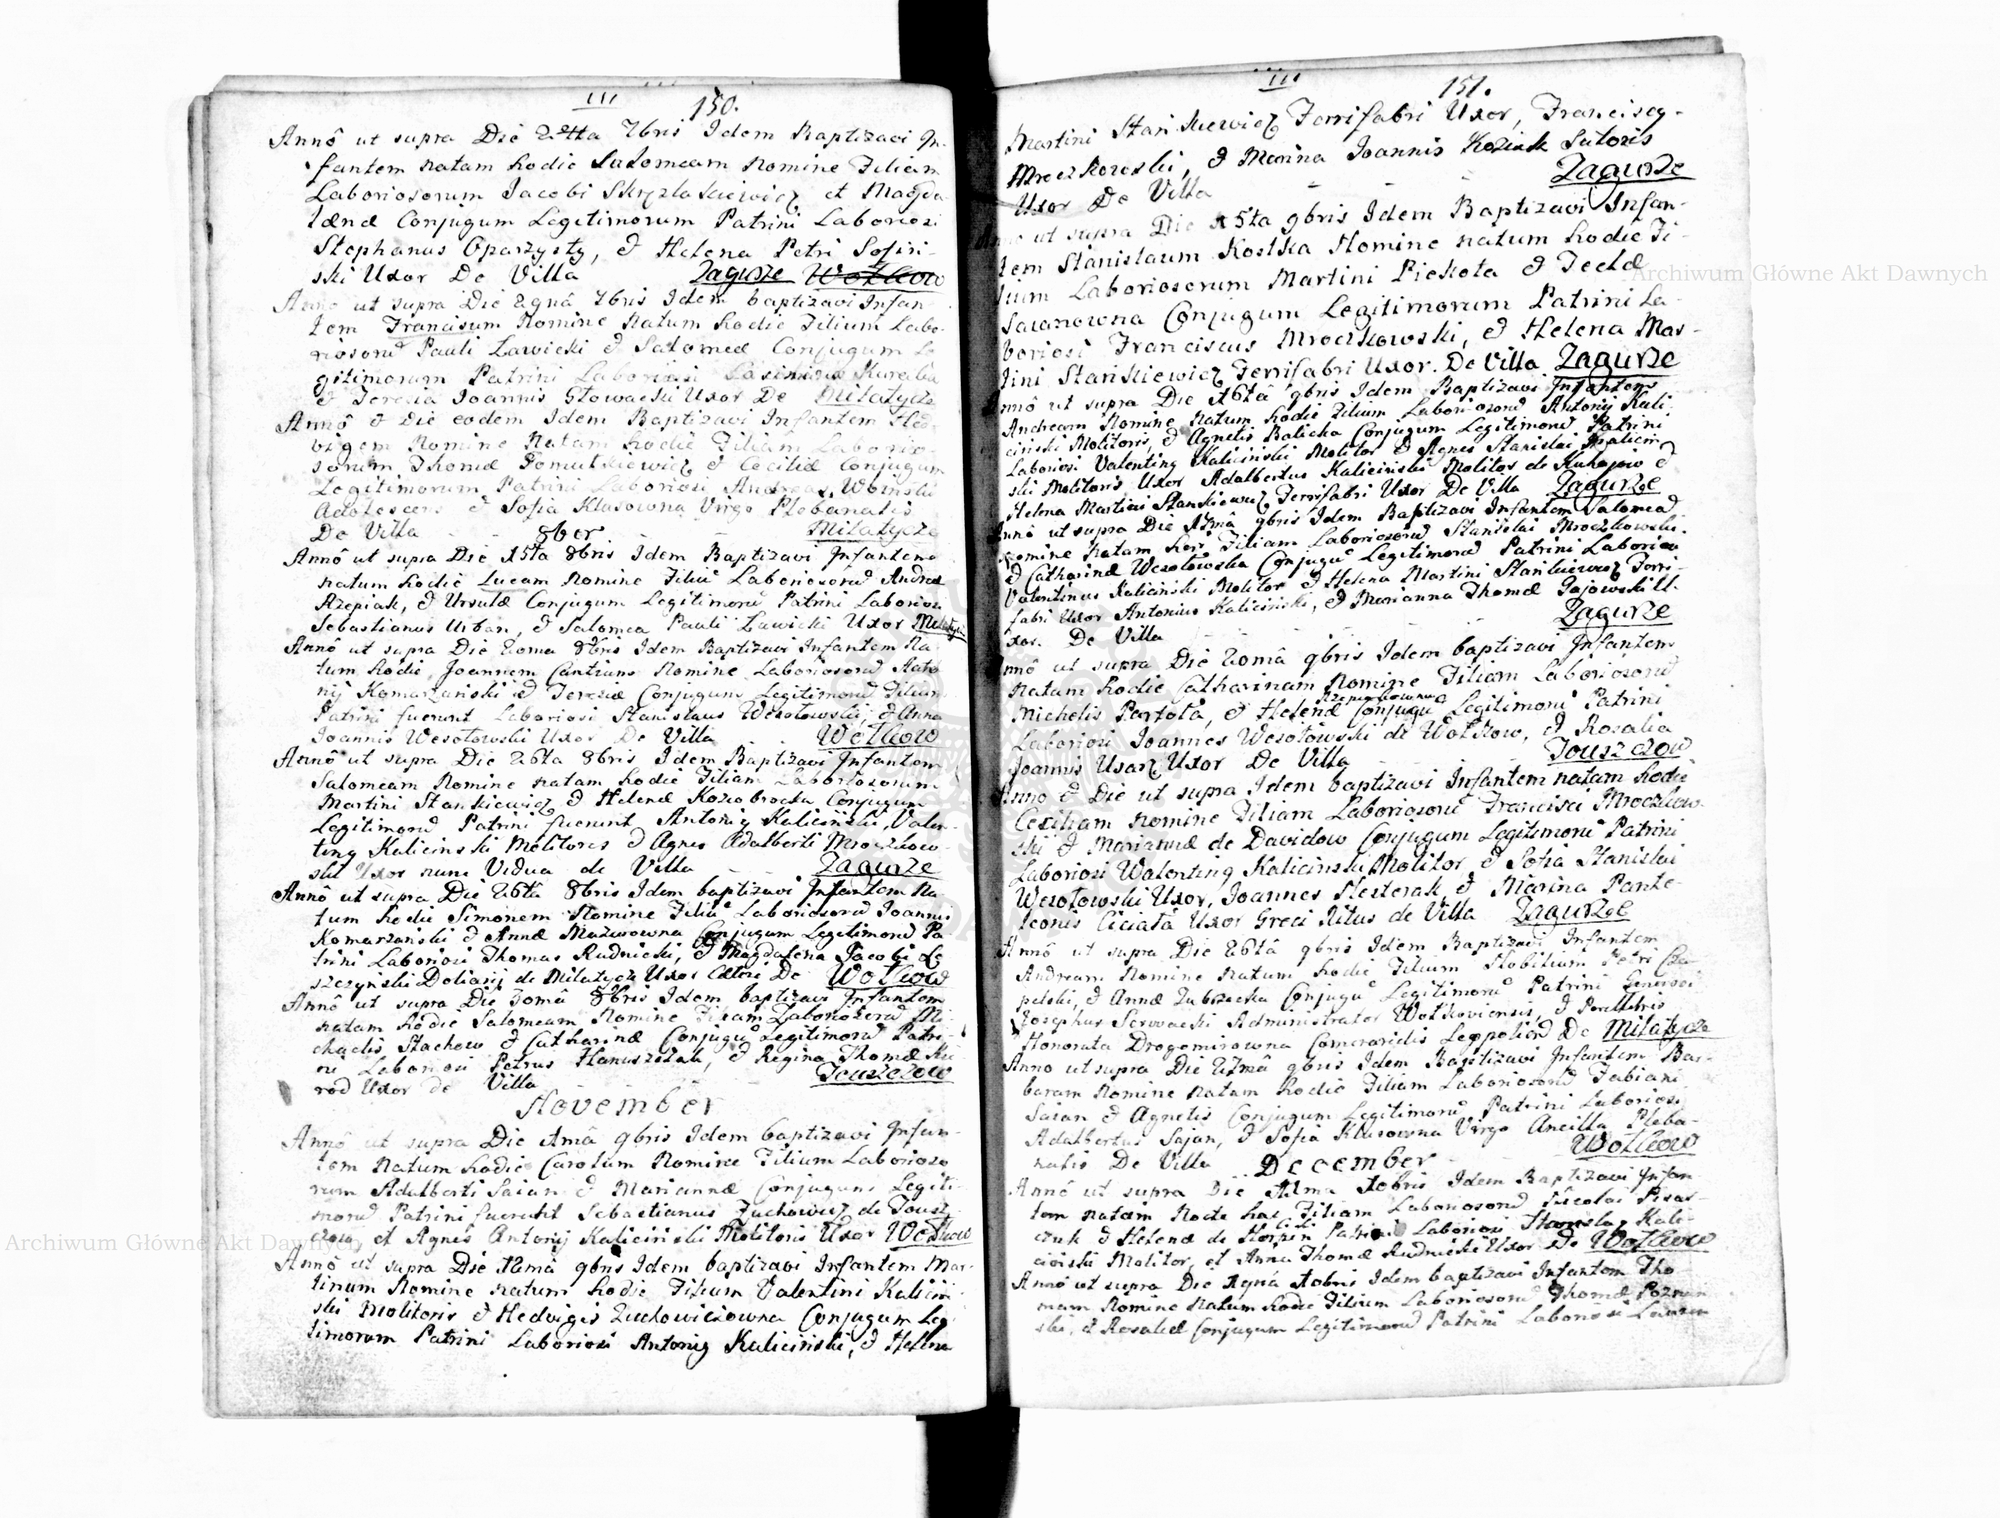 III 150.
Annô ut supra Die 24tta 7bris Idem Baptizavi In-
fantem natam hodie Salomeam Nomine Filiam
Laboriosorum Jacobi et Magda
lænæ Conjugum Legitimorum Patrini Laboriosi
Stephanus Oparzysty, & Helena Petri
ski Uxor De Villa Zagurze
Anno ut supra Die 29nâ 7bris Idem baptizavi Infan-
tem Francisum Nomine Natum hodie Filium Labo-
riosorũ Pauli Zawicki & Salomeæ Conjugum Le
gitimorum Patrini Laboriosi
& Teresia Joannis Głowacki Uxor De Milatycze
Annô & Die eodem Idem Baptizavi Infantem Hed-
vigem Nomine Natam hodie Filiam Laborio-
sorum Thomæ & Ceciliæ Conjugum
Legitimorum Patrini Laboriosi Andreas Woinski
Adolescens & Sofia Klusowna Virgo Plebanalis
De Villa 8ber Milatycze
Annô ut supra Die 15ta 8bris Idem Baptizavi Infantem
natum hodie Lucam Nomine Filiũ Laboriosorũ Andreæ
Rzepiak, & Ursulæ Conjugum Legitimorũ Patrini Laboriosi
Sebastianus Urban, & Salomea Pauli Zawicki Uxor Milatycze
Annô ut supra Die 20ma 8bris Idem Baptizavi Infantem Na-
tum hodie Joannem Cantium Nomine Laboriosorũ Anto
nij Komarzański & Teresiæ Conjugum Legitimorũ Filium
Patrini fuerunt Laboriosi Stanislaus Wesołowski, & Anna
Joannis Wesołowski Uxor De Villa Wołkow
Annô ut supra Die 26ta 8bris Idem Baptizavi Infantem
Salomeam Nomine natam hodie Filiam Laboriosorum
Martini Stankiewicz & Helenæ Kozłobrocka Conjugum
Legitimorũ Patrini fuerunt Antonig Kaliciński, Valen-
ting Kaliciński Molitores & Agnes Adalberti Mroczkow-
ski Uxor nunc Vidua de Villa Zagurze
Annô ut supra Die 26tâ 8bris Idem baptizavi Infantem Na-
tum hodie Simonem Nomine Filiũ Laboriosorũ Joannis
Komarzański & Annæ Mazurowna Conjugum Legitimorũ Pa
trini Laboriosi Thomas Rudnicki, & Magdalena Jacobi Le
szczyński Doliarij de Milatycze Uxor De Wołkow
Annô ut supra Die 30mâ 8bris Idem baptizavi Infantem
natam hodie Salomeam Nomine Filiam Laboriosorũ Mi-
chaelis Stachow & Catharinæ Conjugũ Legitimorũ Patri-
ni Laboriosi Petrus Hanuszczak, & Regina Thomæ
rod Uxor de Villa Touszczow
November
Annô ut supra Die 1mâ 9bris Idem baptizavi Infan-
tem natum hodie Carolum Nomine Filium Laborioso
rum Adalberti Saian & Mariannæ Conjugum Legiti-
morũ Patrini fuerunt Sebastianus Zuchowicz de Tousz-
czow, et Agnes Antonij Kaliciński Molitoris Uxor Wołkow
Annô ut supra Die 9bris Idem baptizavi Infantem Mar-
tinum Nomine natum hodie Filium Valentini Kalicin-
ski Molitoris & Hedvigis Zuchowiczowna Conjugum Leg-
timorum Patrini Laboriosi Antonig Kaliciński, & Helena
III 151.
Martini Stankiewicz Ferrifabri Uxor, Franciscg
Mroczkowski, & Marina Joannis Koziak Sutoris
Uxor De Villa Zagurze
Anno ut supra Die 15ta 9bris Idem Baptizavi Infan-
tem Stanislaum Kostka Nomine natum hodie Fi-
lium Laboriosorum Martini Piekota & Teclæ
Saianowna Conjugum Legitimorum Patrini La-
boriosi Franciscus Mroczkowski, & Helena Mar-
tini Stańkiewicz Ferrifabri Uxor. De Villa Zagurze
Annô ut supra Die 16tâ 9bris Idem Baptizavi Infantem
Andream Nomine Natum hodie Filium Laboriosorũ Antonij Kali
ciński Molitoris, & Agnetis Balicka Conjugum Legitimorũ Patrini
Laboriosi Valenting Kaliciński Molitor & Agnes Stanislai Kalicin
ski Molitoris Uxor Adalbertus Kaliciński Molitor de Kuhajow &
Helena Martini Stankiewicz Ferrifabri Uxor De Villa Zagurze
Annô ut supra Die 9bris Idem Baptizavi Infantem Salomeã
Nomine Natam heri Filiam Laboriosorũ Stanislai Mroczkowski
& Catharinæ Wesołowska Conjugũ Legitimorũ Patrini Laboriosi
Valentinus Kaliciński Molitor & Helena Martini Stańkiewicz Ferri-
fabri Uxor Antonius Kaliciński, & Marianna Thomæ Gajowski U-
xor. De Villa Zagurze
Annô ut supra Die 20mâ 9bris Idem baptizavi Infantem
natam hodie Catharinam Nomine Filiam Laboriosorũ
Michelis Partoła, & Helenæ Conjugũ Legitimorũ Patrini
Laboriosi Joannes Wesołowski de Wołkow, & Rosalia
Joannis Usarz Uxor De Villa Touszczow
Anno & Die ut supra Idem baptizavi Infantem natam hodie
Ceciliam Nomine Filiam Laboriosorũ Francisci Mroczkow-
ski & Mariannæ de Davidow Conjugum Legitimorũ Patrini
Laboriosi Walenting Kaliciński Molitor & Sofia Stanislai
Wesołowski Uxor, Joannes Nesterak, & Marina Pante-
leonis Ciciała Uxor Greci Ritus de Villa Zagurze
Annô ut supra Die 26tâ 9bris Idem Baptizavi Infantem
Andream Nomine natum hodie Filium Nobilium Petri Cza-
pelski, & Annæ Zubrzecka Conjugũ Legitimorũ Patrini Generosi
Josephus Serwacki Administrator Wołkoviensis, &
Honorata Drogomirowna De Milatycze
Anno ut supra Die 27mâ 9bris Idem Baptizavi Infantem Bar-
baram Nomine natam hodie Filiam Laboriosorũ Fabiani
Saian & Agnetis Conjugum Legitimorũ Patrini Laboriosi
Adalbertus Sajan, & Sofia Klusowna Virgo Ancilla Pleba-
nalis De Villa Wołkow
December
Annô ut supra Die Xbris Idem Baptizavi Infan-
tem natam Nocte hac Filiam Laboriosorũ Nicolai Pisar-
czuk & Helenæ de Horpin Patrini Laboriosi Stanislaus Kali-
ciński Molitor, et Anna Thomæ Rudnicki Uxor De Wołkow
Annô ut supra Die Xbris Idem baptizavi Infantem Tho-
mam Nomine natum hodie Filium Laboriosorũ Thomæ Poznan
ski, & Rosaliæ Conjugum Legitimorũ Patrini Laboriosi
Archiwum Główne Akt Dawnych
Archiwum Główne Akt Dawnych